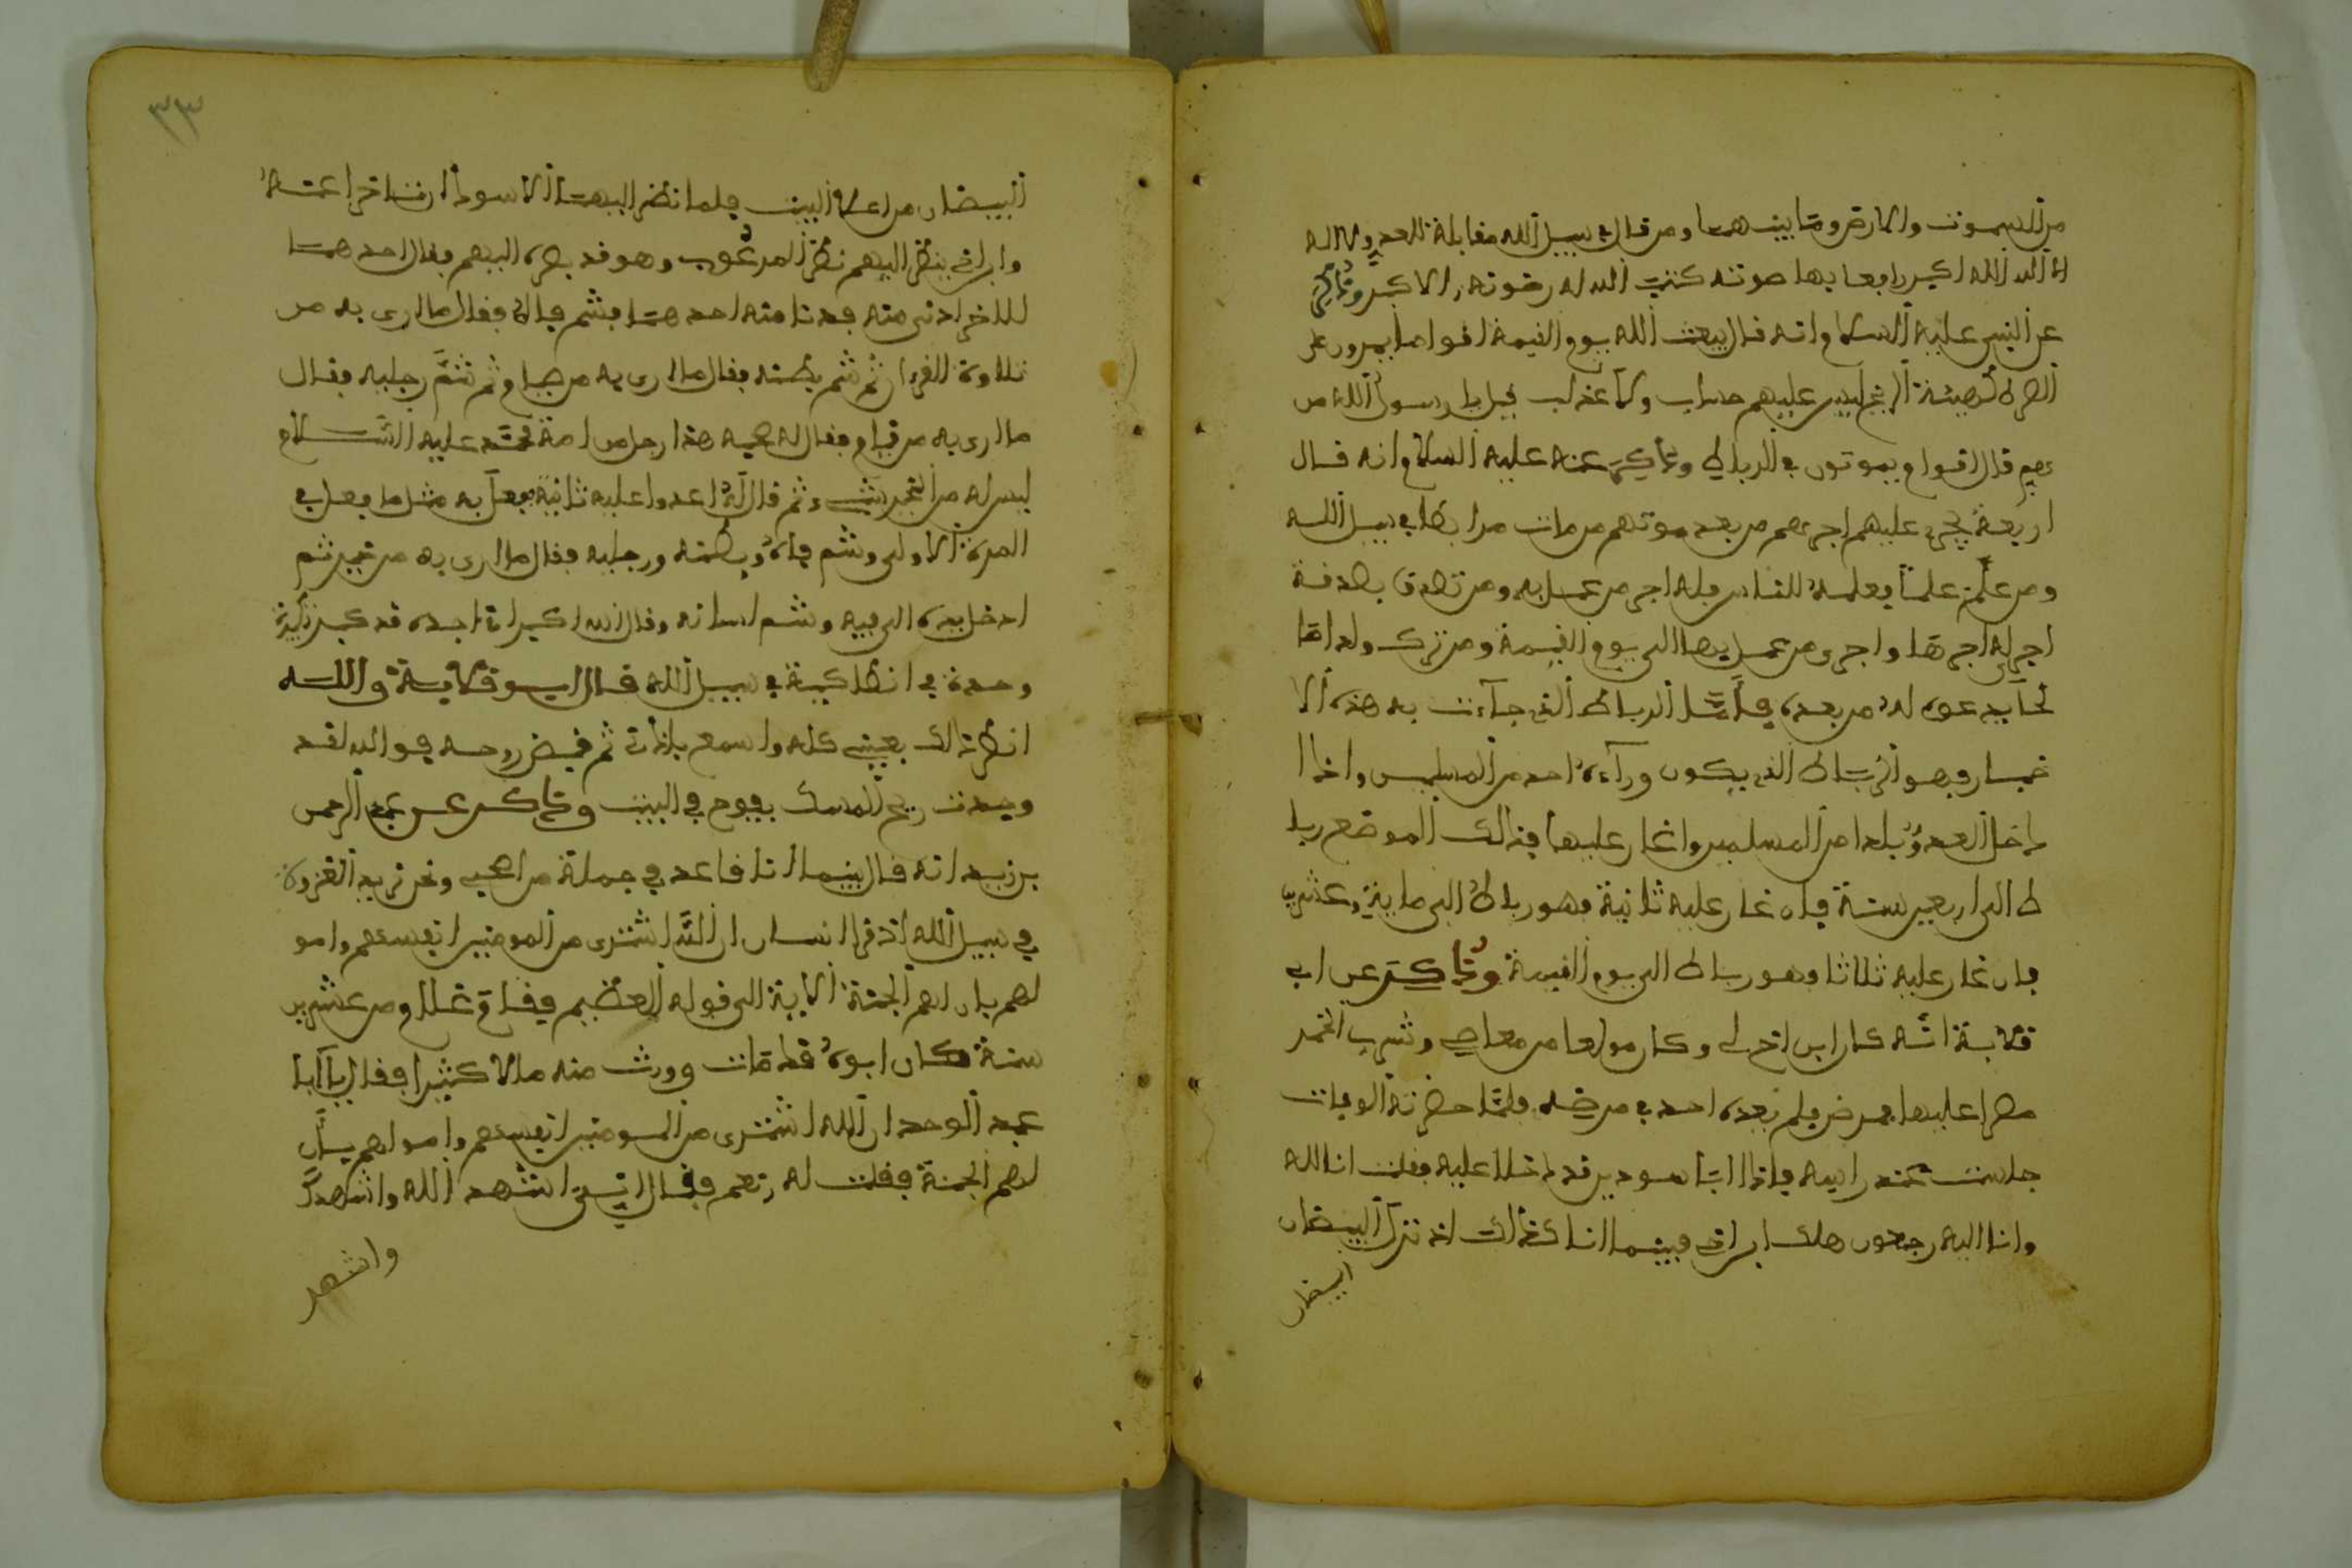 من السموت والارض وما بينهما ومن قال في سبيل الله مقابلة للعدو لا اله
الا الله الله اكبر رافعا بها صوته كتب الله له رضوته الاكبر وذكر
عن النبي عليه السلام انه قال يبعث الله يوم القيمة اقواما يمرون على
الصراط كهيئة الريح ليس عليهم حساب ولا عذاب قيل يا رسول الله من
هم قال اقوام يموتون في الرباط وذكر عنه عليه السلام انه قال
اربعة يجري عليهم اجرهم من بعد موتهم من مات مرابطا في سبيل الله
ومن علم علما يعلمه للناس فله اجر من عمل به ومن تصدق بصدقة
اجر له اجرها واجرى من عمل بها الى يوم القيمة ومن ترك ولدا صا
لحا يدعوه له من بعده فامّا الرباط الذي جآءت به هذه الا
خبار فهو الرباط الذي يكون ورآءه احد من المسلمين واذا ا
دخل العدو بلدا من المسلمين واغار عليها فذالك الموضع ربا
ط الى اربعين سنة فان غار عليه ثانية فهو رباط الى ماية وعشرين
فان غار عليه ثلاثا وهو رباط الى يوم القيمة وذكر عن ابي
قلابة انّه كان ابن اخ لي وكان مولعا من معاصي وشرب الخمر
مصرا عليها فمرض فلم يعده احد في مرضه فلمّا حضرته الوفات
جلست عند راسه فاذا انا باسودين قد دخلا عليه فقلت انا لله
وانا اليه رجعون هلك ابن اخي فبينما انا كذالك اذ نزل البيضان
ابيضان
البيضان من اعلا البيت فلما نظر اليهما الاسودان تاخرا عنه
وابن اخي ينظر اليهم نظر المرعوب وهو قد بصره اليهم فقال احدهما
للاخر ادنى منه فدنا منه احدهما فشم فاه فقال ما ارى به من
تلاوة القرءان ثم شم بطنه فقال ما ارى به من صيام ثم شمّ رجليه فقال
ما ارى به من قيام فقال له صاحبه هذا رجل من امة محمّد عليه السّلام
ليس له من الخير شيء ثم قال له اعدوا عليه ثانية ففعل به مثل ما فعل في
المرة الاولى وشم فاه وبطنه ورجليه فقال ما ارى به من خير ثم
ادخل يده الى فيه وشم لسانه وقال الله اكبر اني اجده قد كبر تكبيرة
وحدة في انطاكية في سبيل الله قال ابو قلابة والله
انظر ذالك بعيني كله واسمع باذني ثم قبض روحه فو الله لقد
وجدت ريح المسك يفوح في البيت وذكر عن عبد الرحمن
بن زيد انه قال بينما انا قاعد في جملة من اصحابي ونحن نريد الغزوة
في سبيل الله اذ قرا انسان ان الله اشترى من المومنين انفسهم وامو
لهم بان لهم الجنة الاية الى قوله العظيم فقام غلام من عشرين
سنة كان ابوه قد مات وورث منه مالا كثيرا فقال يا ابا
عبد الوحد ان الله اشترى من المومنين انفسهم وامولهم بانّ
لهم الجنة فقلت له نعم فقال انّي اشهد الله واشهدك
واشهد
٣٣